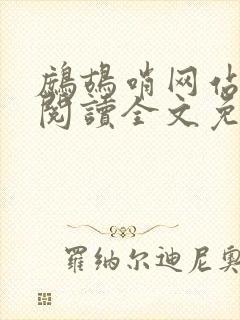 鷓鴣哨网站
閱讀全文免
羅纳尔迪尼奥